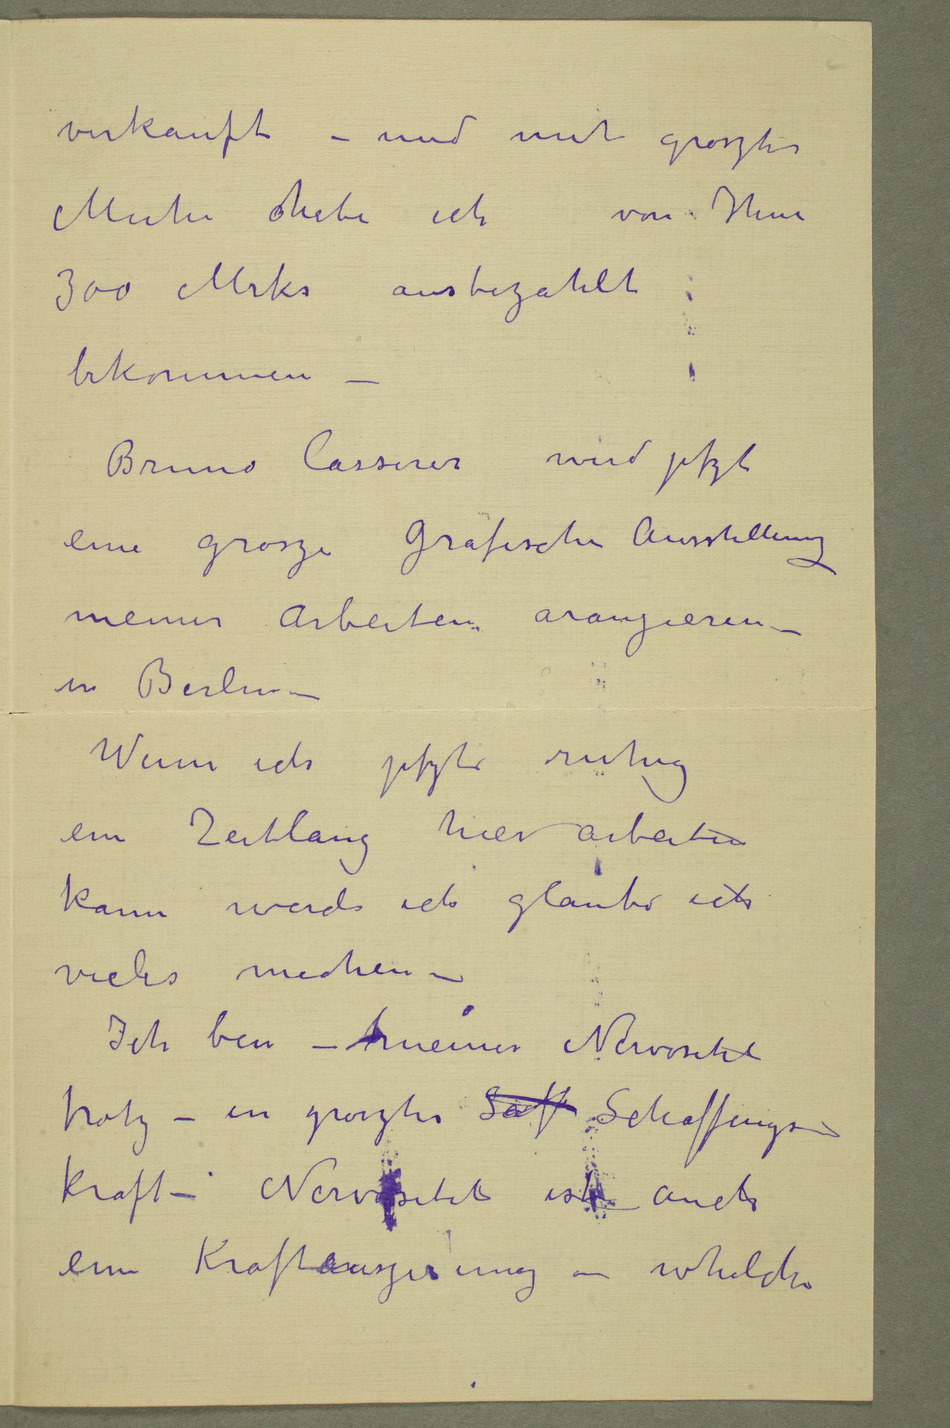 verkauft – und mit groszter
Muhe habe ich von Ihm
300 Mrks ausbezahlt
bekommen –
Bruno Cassirer wird jetzt
eine grosze grafische Ausstellung
meiner Arbeiten arangieren –
in Berlin –
Wenn ich jetzt ruhig
ein Zeitlang hier arbeiten
kann werde ich glaube ich
vieles machen –
Ich bin – meiner Nervositet
trotz – in groszter Schaffungs –
kraft – Nervositet ist auch
eine Kraftäuszerung – whelche